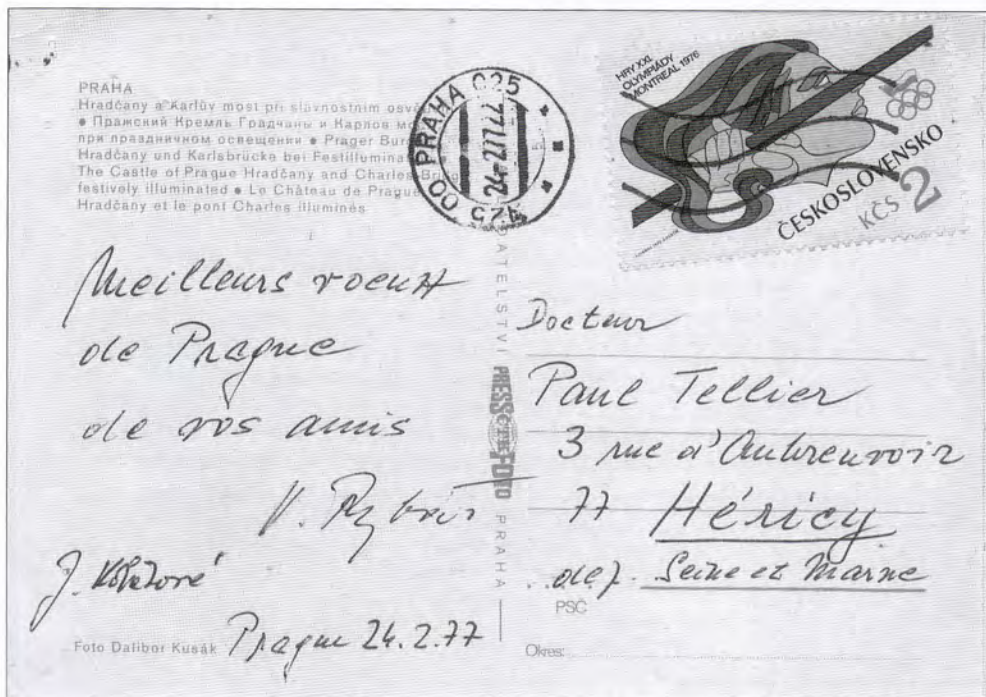 PRAHA
Hradčany a Karlův most při slavnostním osvě
• Пражский Кремль Градчаны и Карлов мо
при праздничном освещении • Prager Bur
Hradčany und Karlsbrücke bei Festilluminat
The Castle of Prague Hradčany and Charles Bridg
festively illuminated • Le Château de Prague
Hradčany et le pont Charles illuminés
125 00 PRAHA 025
HRY XXI.
OLYMPIÁDY
MONTREAL 1976
ČESKOSLOVENSKO
KČS 2
Meilleurs voeux
de Prague
de vos amis
Prague 24.2.77
Foto Dalibor Kusák
DATELSTVÍ PRESSFOTO PRAHA
Docteur
Paul Tellier
3 rue d'
77 Héricy
dep. Seine et Marne
PSČ
Okres: